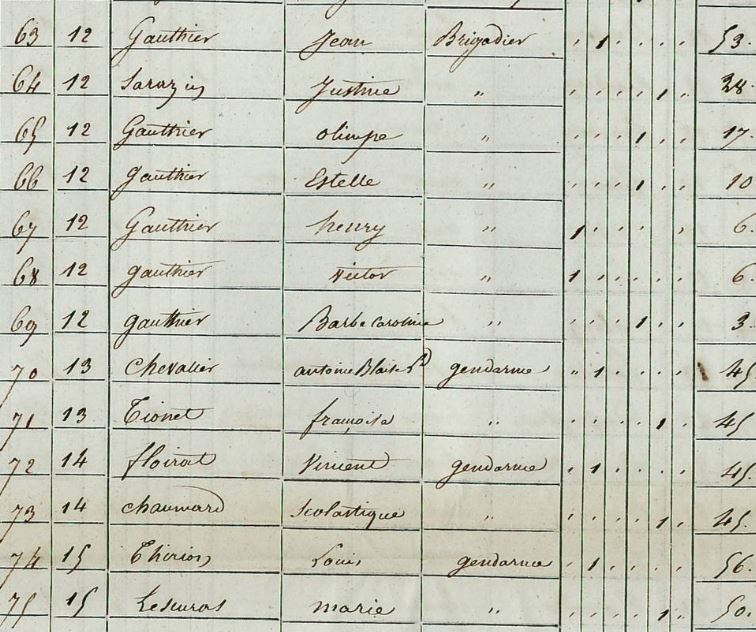 63 12 Gauthier Jean Brigadier , 1 , , , , 53.
64 12 Sarazin Justine " , , , , 1 , 38.
65 12 Gauthier olimpe " , , , 1 , , 17.
66 12 gauthier Estelle " , , , 1 , , 10
67 12 Gauthier henry " 1 , , , , , 6.
68 12 gauthier victor " 1 , , , , , 6
69 12 gauthier Barbe Caroline " , , , 1 , , 3.
70 13 Chevalier antoine Blaise gendarme " 1 , , , , 45
71 13 Tionet françoise " , , , , 1 , 45
72 14 floirat Vincent gendarme , 1 , , , , 45.
73 14 chaumard Scolastique " , , , , 1 , 45.
74 15 Thirion Louis gendarme , 1 , , , , 56.
75 15 marie " , , , , 1 , 50.